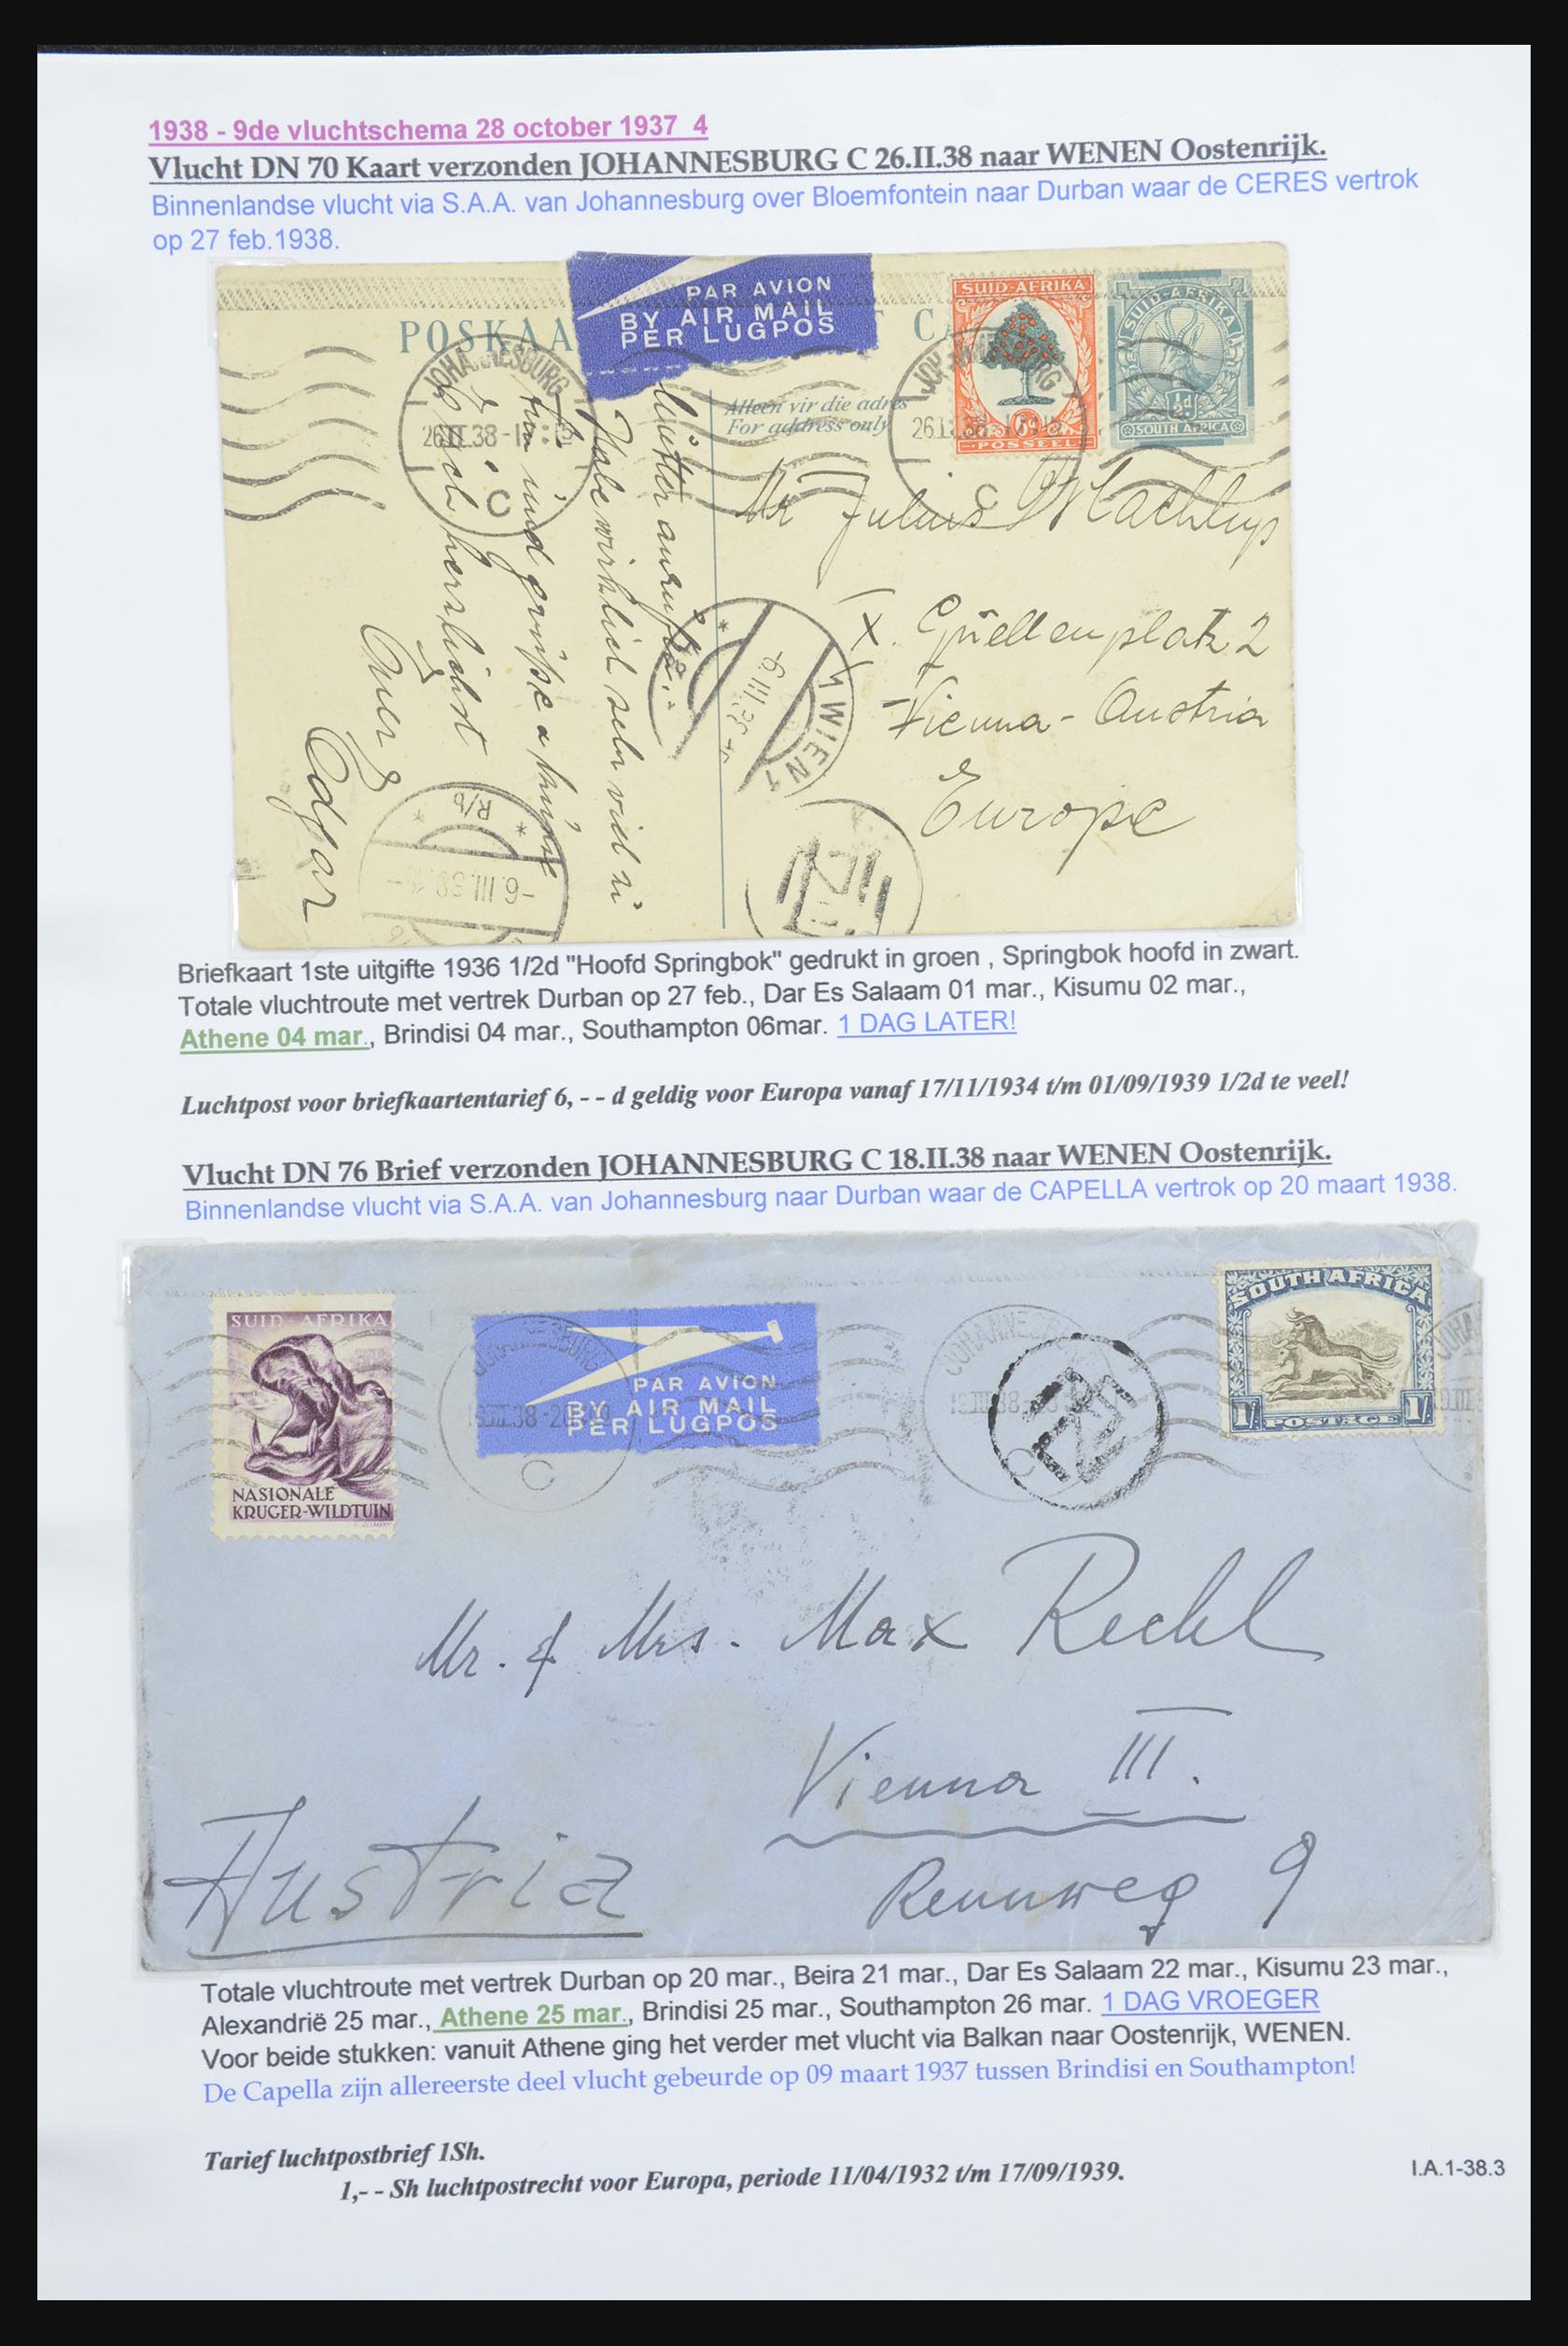 1938 - 9de vluchtschema 28 october 1937  4
Vlucht DN 70 Kaart verzonden JOHANNESBURG C 26.II.38 naar WENEN Oostenrijk.
Binnenlandse vlucht via S.A.A. van Johannesburg over Bloemfontein naar Durban waar de CERES vertrok
op 27 feb.1938.
POSKAA
PAR AVION
BY AIR MAIL
PER LUGPOS
SUID-AFRIKA
6d
POSSEEL
SUID-AFRIKA
½d
SOUTH AFRICA
JOHANNESBURG
26.II.38
C
JOHANNESBURG
26.II.38
C
Alleen vir die adres
For address only
Mr Julius Machlup
X. Quellenplatz 2
Vienna - Austria
Europe
Mutter anrufst.
Habe wirklich sehr viel zu
tun und grüsse
Euch herzlichst
Euer
Edgar
1 WIEN 1
6.III.38
R/b
-6.III.38
Briefkaart 1ste uitgifte 1936 1/2d "Hoofd Springbok" gedrukt in groen , Springbok hoofd in zwart.
Totale vluchtroute met vertrek Durban op 27 feb., Dar Es Salaam 01 mar., Kisumu 02 mar.,
Athene 04 mar., Brindisi 04 mar., Southampton 06mar. 1 DAG LATER!
Luchtpost voor briefkaartentarief 6, - - d geldig voor Europa vanaf 17/11/1934 t/m 01/09/1939 1/2d te veel!
Vlucht DN 76 Brief verzonden JOHANNESBURG C 18.II.38 naar WENEN Oostenrijk.
Binnenlandse vlucht via S.A.A. van Johannesburg naar Durban waar de CAPELLA vertrok op 20 maart 1938.
SUID-AFRIKA
NASIONALE
KRUGER-WILDTUIN
PAR AVION
BY AIR MAIL
PER LUGPOS
JOHANNESBURG
19.III.38
C
SOUTH AFRICA
1/- POSTAGE 1/-
Mr. & Mrs. Max Reckl
Vienna III.
Austria
Rennweg 9
Totale vluchtroute met vertrek Durban op 20 mar., Beira 21 mar., Dar Es Salaam 22 mar., Kisumu 23 mar.,
Alexandrië 25 mar., Athene 25 mar., Brindisi 25 mar., Southampton 26 mar. 1 DAG VROEGER
Voor beide stukken: vanuit Athene ging het verder met vlucht via Balkan naar Oostenrijk, WENEN.
De Capella zijn allereerste deel vlucht gebeurde op 09 maart 1937 tussen Brindisi en Southampton!
Tarief luchtpostbrief 1Sh.
1,- - Sh luchtpostrecht voor Europa, periode 11/04/1932 t/m 17/09/1939.
I.A.1-38.3